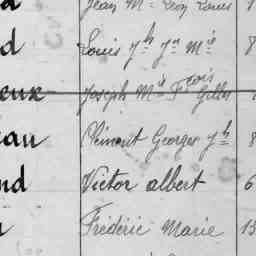 d Jean Mie Léon Louis 1
d Louis Jh Jn Mie 8
eux Joseph Mie Fçois Gilles
eau Clément Georges Jh 8
nd Victor albert 6
Frédéric Marie 13